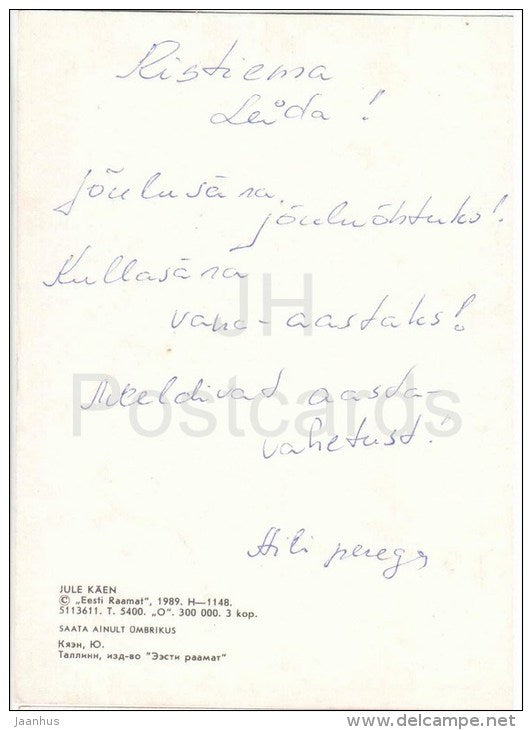 Ristiema
Leida!
Jõulusära
jõuluõhtuks!
Kullasära
vana-aastaks!
Meeldivat aasta-
vahetust!
Hili perega
JH
Postcards
JULE KÄEN
© „Eesti Raamat”, 1989. H—1148.
5113611. T. 5400. „O”. 300 000. 3 kop.
SAATA AINULT ÜMBRIKUS
Кяэн, Ю.
Таллинн, изд-во "Ээсти раамат"
jaanhus
www.delcampe.net